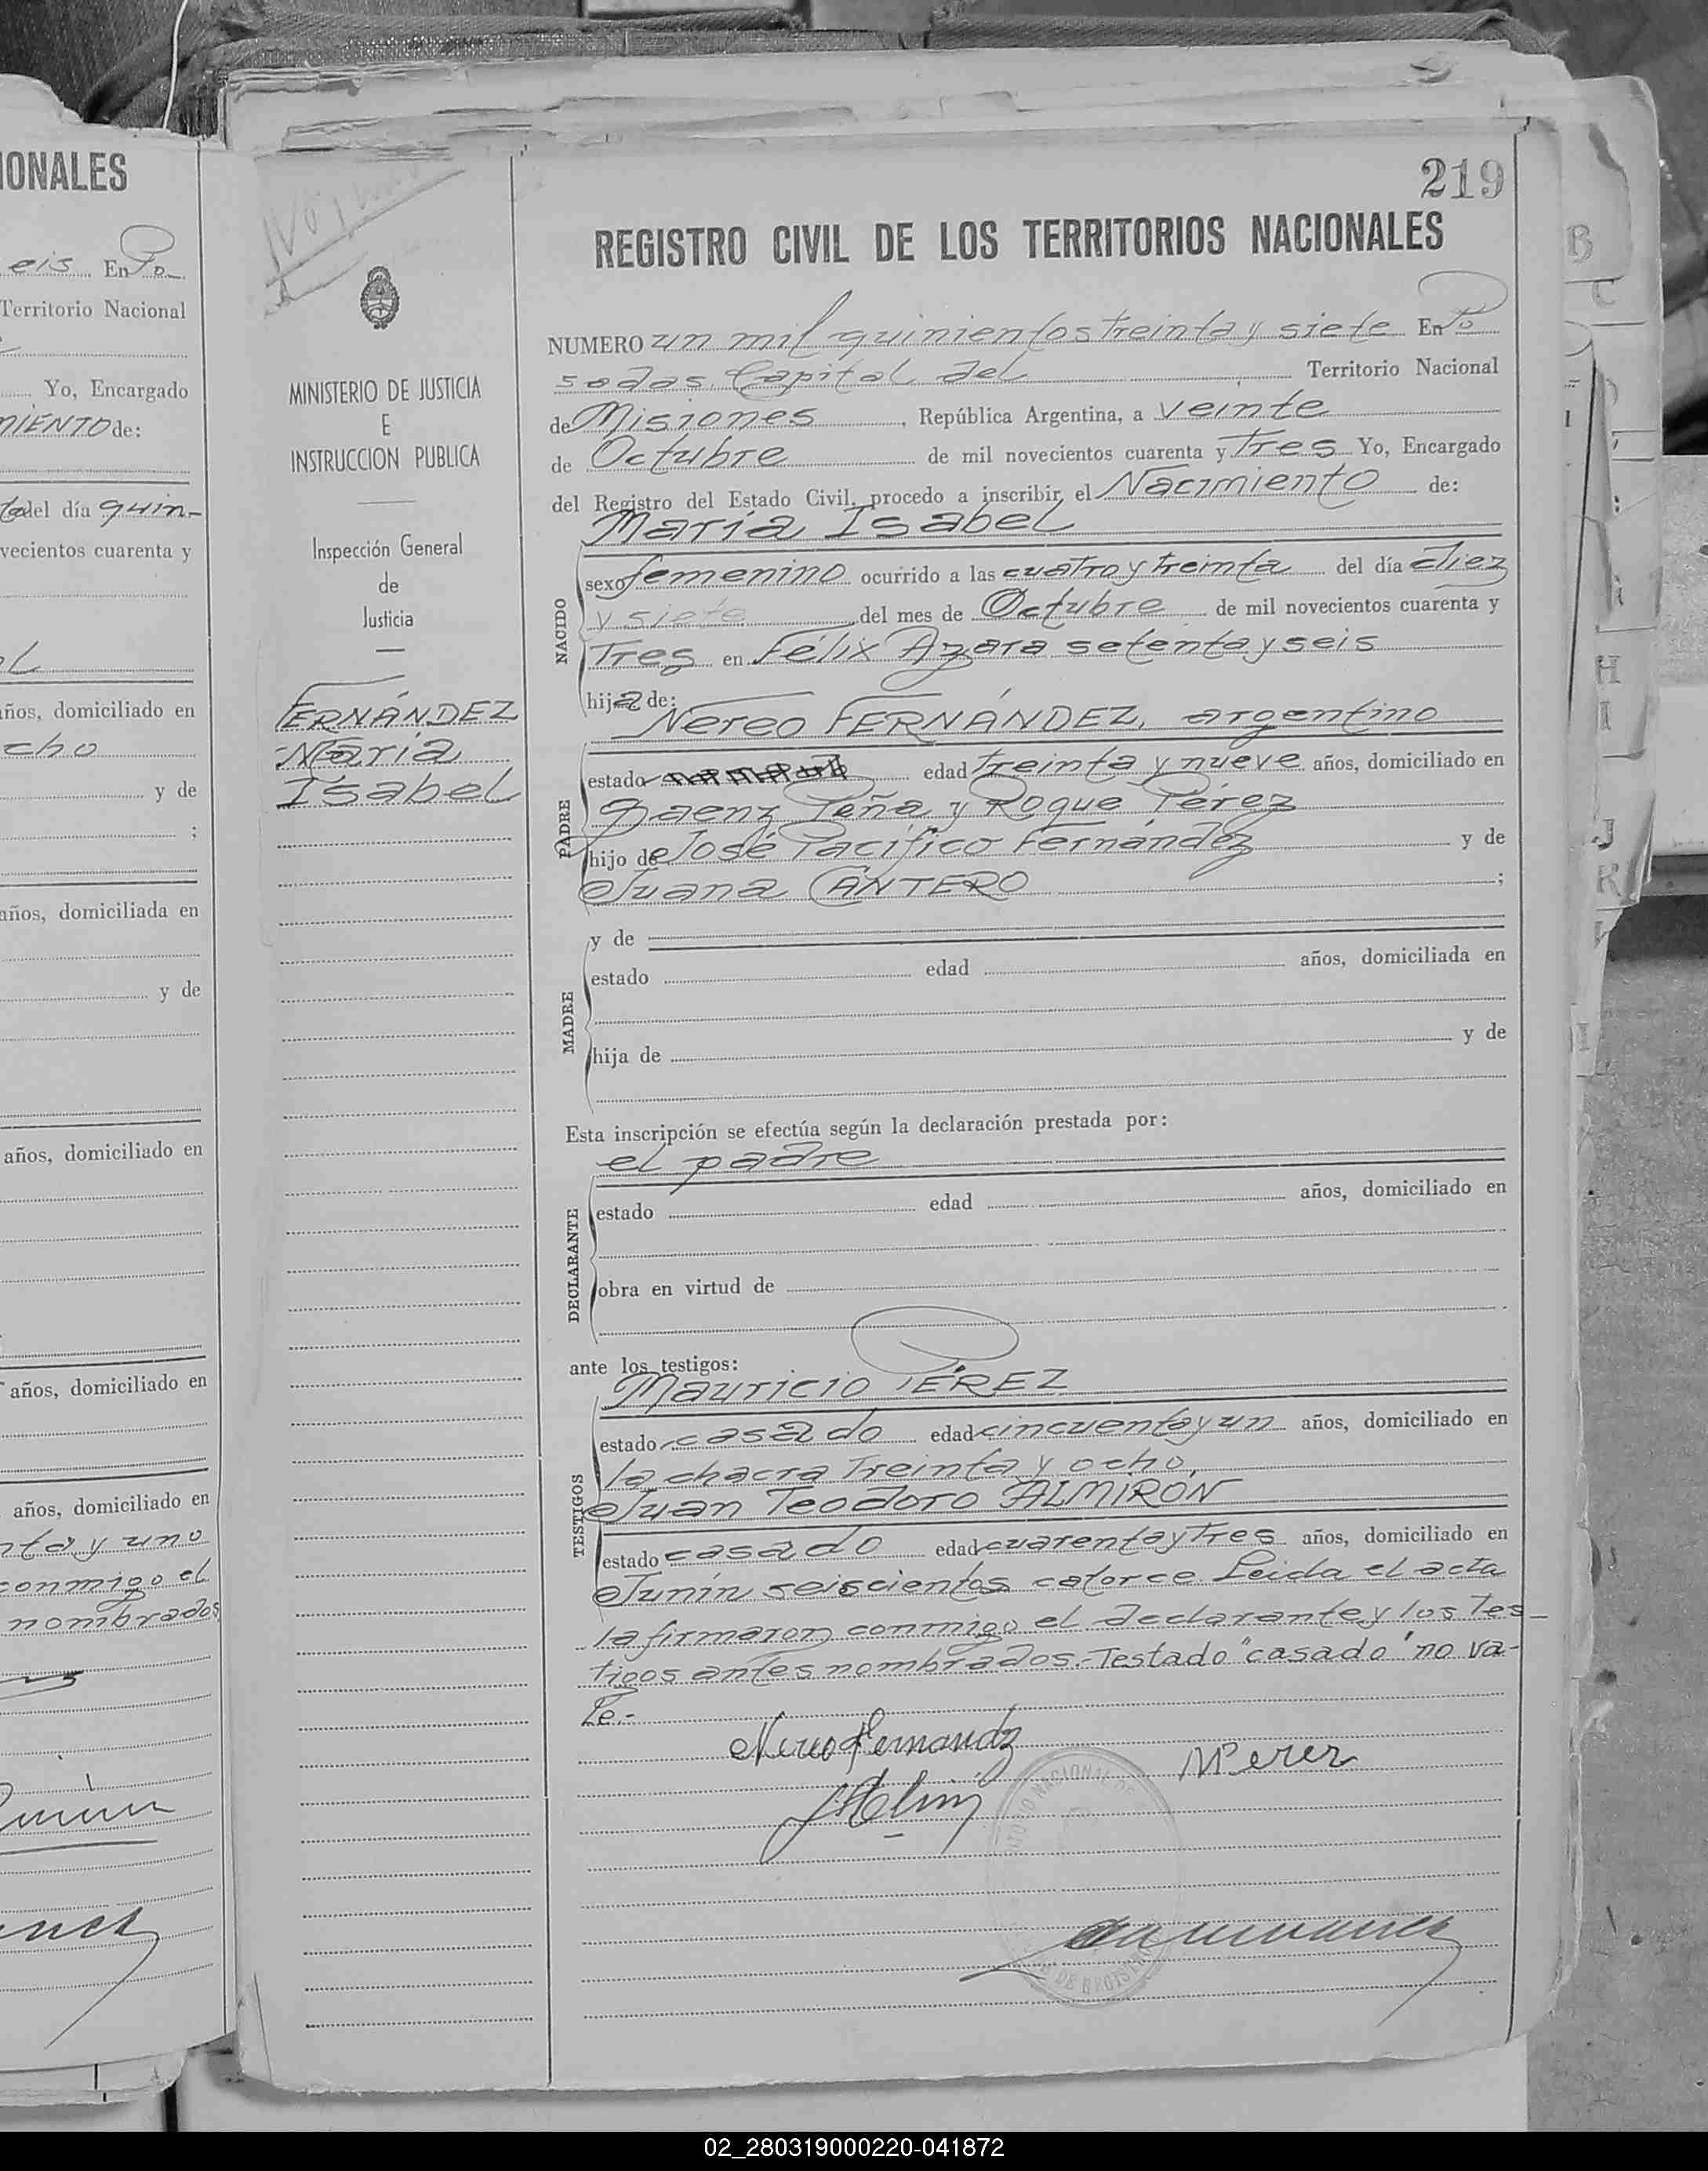 IONALES
eis En Po_
Territorio Nacional
Yo, Encargado
MIENTO de:
del día quin-
vecientos cuarenta y
años, domiciliado en
cho
y de
;
años, domiciliada en
y de
años, domiciliado en
años, domiciliado en
años, domiciliado en
nta y uno
conmigo el
nombrados
219
MINISTERIO DE JUSTICIA
E
INSTRUCCION PUBLICA
Inspección General
de
Justicia
FERNÁNDEZ
María
Isabel
REGISTRO CIVIL DE LOS TERRITORIOS NACIONALES
NUMERO un mil quinientos treinta y siete En Po
sadas, Capital del Territorio Nacional
de Misiones, República Argentina, a veinte
de Octubre de mil novecientos cuarenta y Tres Yo, Encargado
del Registro del Estado Civil, procedo a inscribir el Nacimiento de:
María Isabel
NACIDO
sexo femenino ocurrido a las cuatro y treinta del día diez
y siete del mes de Octubre de mil novecientos cuarenta y
Tres en Félix Azara setenta y seis
hija de:
Nereo FERNÁNDEZ, argentino
PADRE
estado edad treinta y nueve años, domiciliado en
Saenz Peña y Roque Pérez
hijo de José Pacífico Fernández y de
Juana CANTERO ;
MADRE
y de
estado edad años, domiciliada en
hija de y de
Esta inscripción se efectúa según la declaración prestada por:
el padre
DECLARANTE
estado edad años, domiciliado en
obra en virtud de
ante los testigos:
Mauricio PÉREZ
TESTIGOS
estado casado edad cincuenta y un años, domiciliado en
la chacra Treinta y ocho,
Juan Teodoro ALMIRÓN
estado casado edad cuarenta y Tres años, domiciliado en
Junín seiscientos catorce. Leida el acta
la firmaron conmigo el declarante y los Tes_
tigos antes nombrados.-Testado "casado" no va-
le.-
Nereo Fernandz
MPerez
02_280319000220-041872